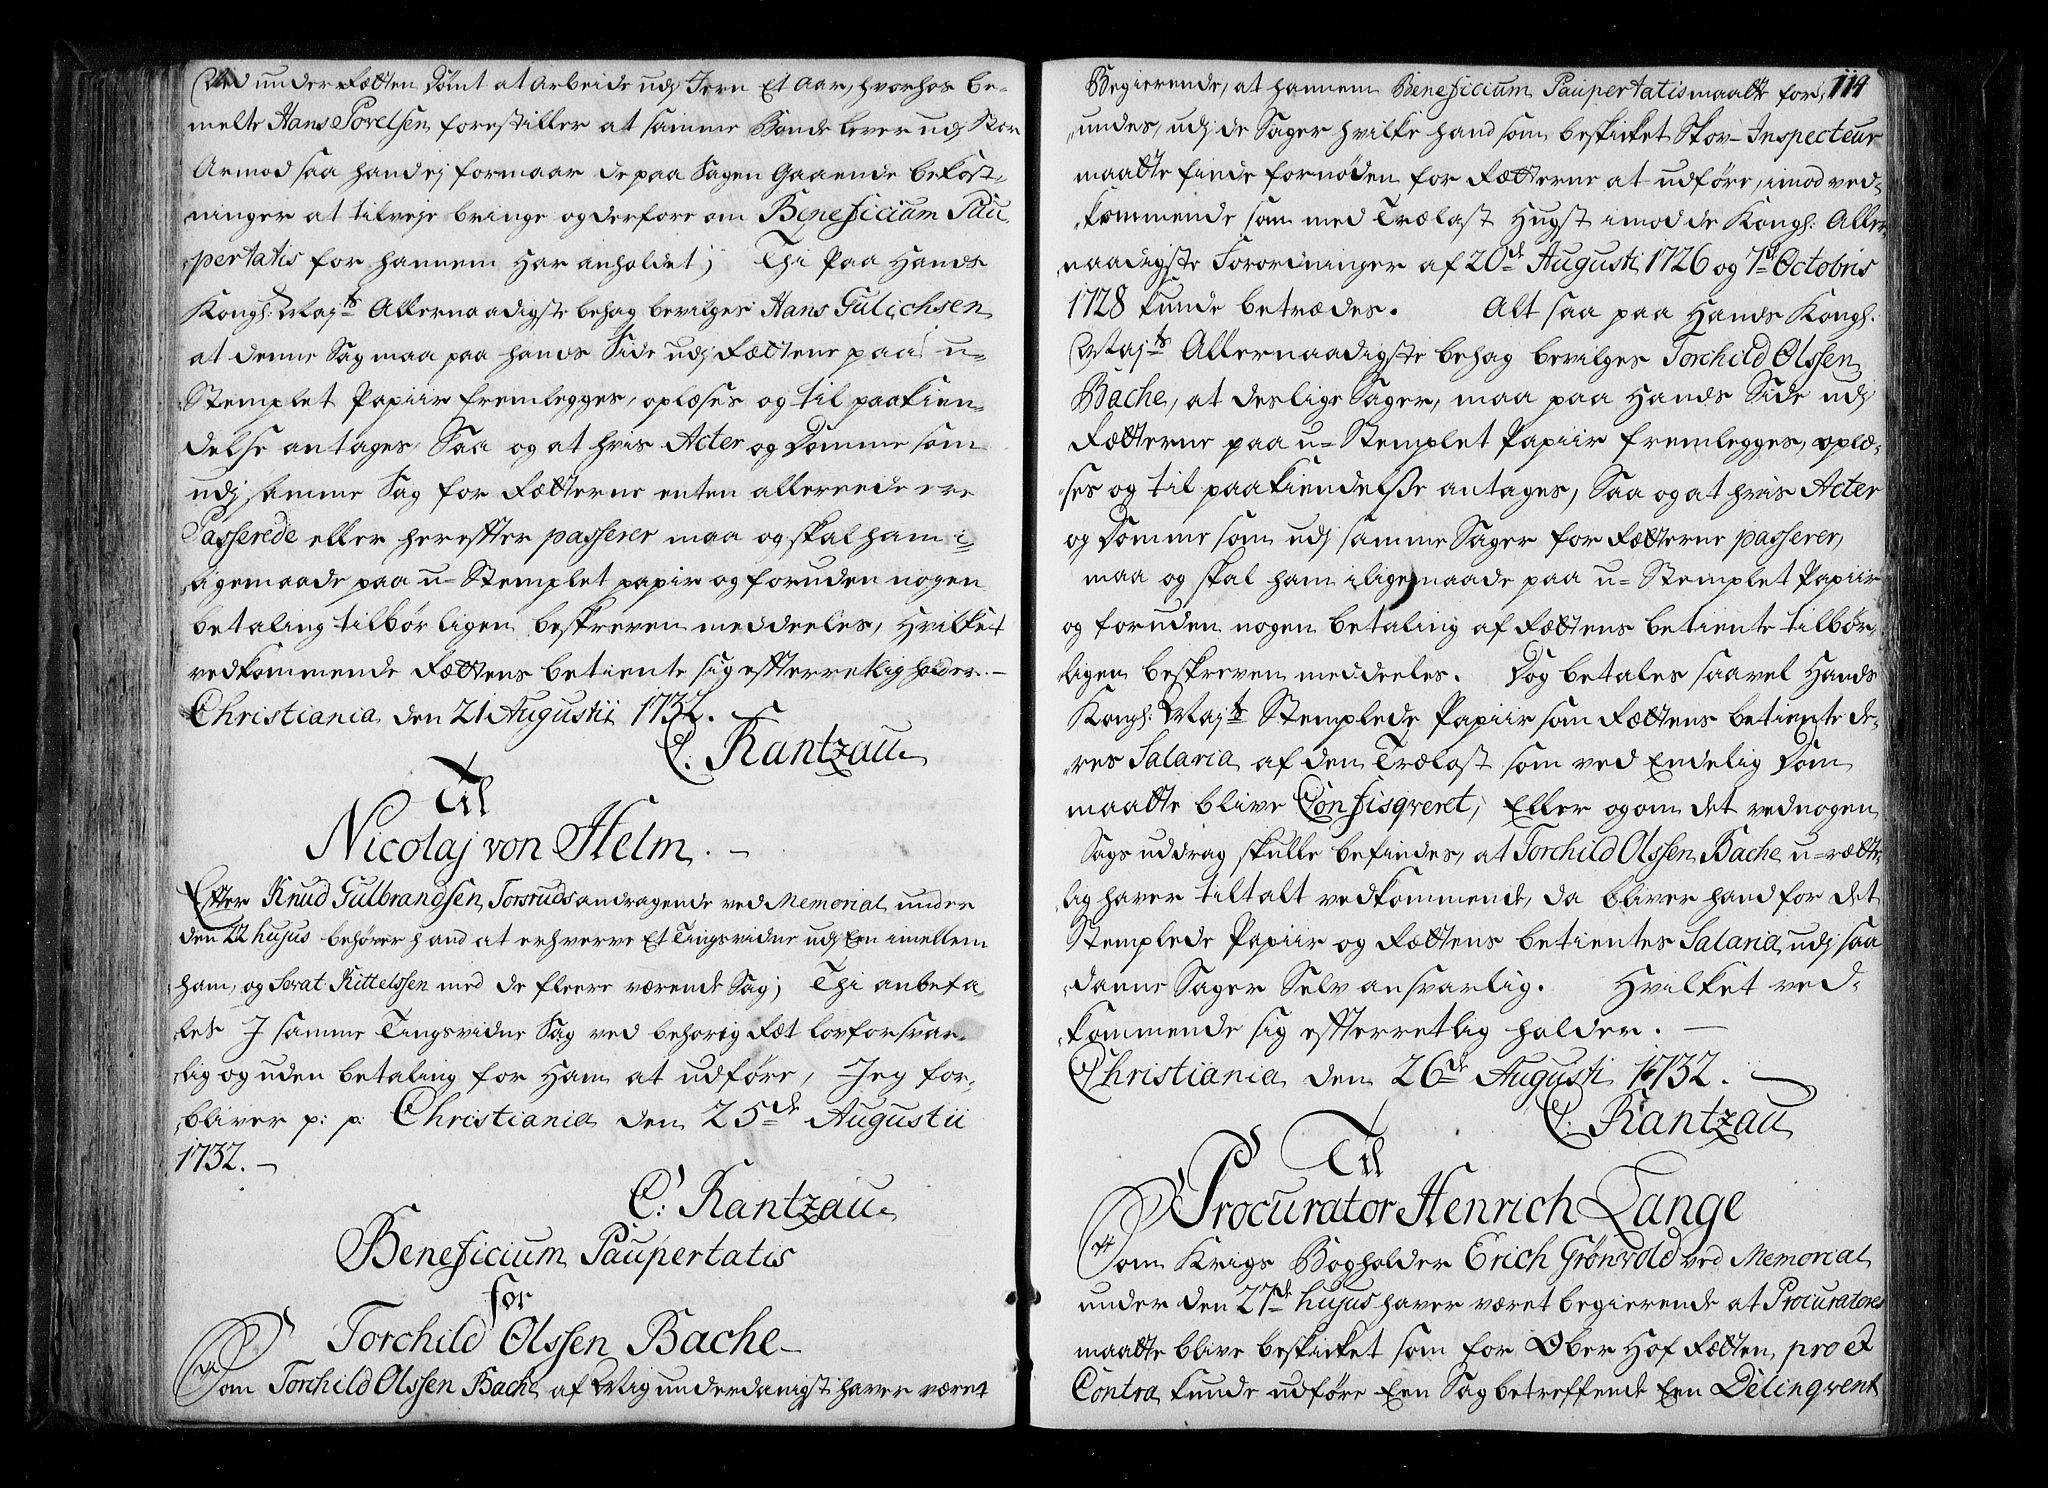 Ved under Rætten Dömt at Arbeide udj Jern Et Aar, hvorhos be-
melte Hans Povelsen forestiller at samme Bonde lever udj Stor
Armod saa hand ej formaar de paa Sagen Gaaende bekost-
ninger at tilveje bringe og derfore om Beneficium Pau-
pertatis for hannem har anholdet; Thi Paa Hands
Kongl: Maj:ts Allernaadigste behag bevilges Hans Gulichsen
at denne Sag maa paa hands Side udj Rættene paa u-
Stemplet Papiir fremlegges, oplæses og til paakien-
delse antages, Saa og at hvis Acter og Domme som
udj samme Sag for Rætterne enten allereede ere
Passerede eller herefter passerer maa og skal ham i-
ligemaade paa u-Stemplet papir og foruden nogen
betaling tilbørligen beskreven meddeeles, Hvilket
vedkommende Rættens betiente sig efterretlig holder. -
Christiania den 21 Augustii 1732.
C. Rantzau
Til
Nicolaj von Helm. -
Efter Knud Gulbrandsen Torsruds andragende ved Memorial under
den 22 hujus behøver hand at erhverve Et Tingsvidne udj Een imellem
ham, og Torat Kittelssen med de fleere værende Sag; Thi anbefa-
les J samme Tingsvidne Sag ved behørig Ræt lovforsvar-
lig og uden betaling for Ham at udføre, Jeg for-
bliver p: p: Christiania den 25de Augustii
1732. -
C: Rantzau
Beneficium Paupertatis
for
Torchild Olssen Bache -
Som Torchild Olssen Bache af Mig underdanigst haver været
114
Begierende, at hannem Beneficium Paupertatis maatte for-
undes, udj de Sager hvilke hand som beskicket Skov-Inspecteur
maatte finde fornøden for Rætterne at udføre, imod ved-
kommende som med Trælast Hugst imod de Kongl: Aller-
naadigste Forordninger af 20de Augusti 1726 og 7de Octobris
1728 kunde betrædes. Alt saa paa Hands Kongl:
Maj:ts Allernaadigste behag bevilges Torchild Olssen
Bache, at deslige Sager, maa paa Hands Side udj
Rætterne paa u-Stemplet Papiir fremlegges, oplæ-
ses og til paakiendelsse antages, Saa og at hvis Acter
og Domme som udj samme Sager for Rætterne passerer,
maa og skal ham iligemaade paa u-Stemplet Papiir
og foruden nogen betaling af Rættens betiente tilbør-
ligen beskreven meddeeles. Dog betales saavel Hands
Kongl: Maj:ts Stemplede Papiir som Rættens betiente de-
res Salaria af den Trælast som ved Endelig Dom
maatte blive Confisqveret, Eller og om det ved nogen
Sags uddrag skulle befindes, at Torchild Olssen Bache u-rætte-
lig haver tiltalt vedkommende, da bliver hand for det
Stemplede Papiir og Rættens betientes Salaria udj saa
danne Sager Selv ansvarlig. Hvilket ved-
kommende sig efterretlig holder. -
Christiania den 26de Augusti 1732.
C: Rantzau
Til
Procurator Henrich Lange
Som Krigs Bogholder Erich Grønvold ved Memorial
under den 27de hujus haver været begierende at Procuratores
maatte blive beskicket som for Ober Hof Rætten pro et
Contra kunde udføre Een Sag betreffende Een Delinqvent